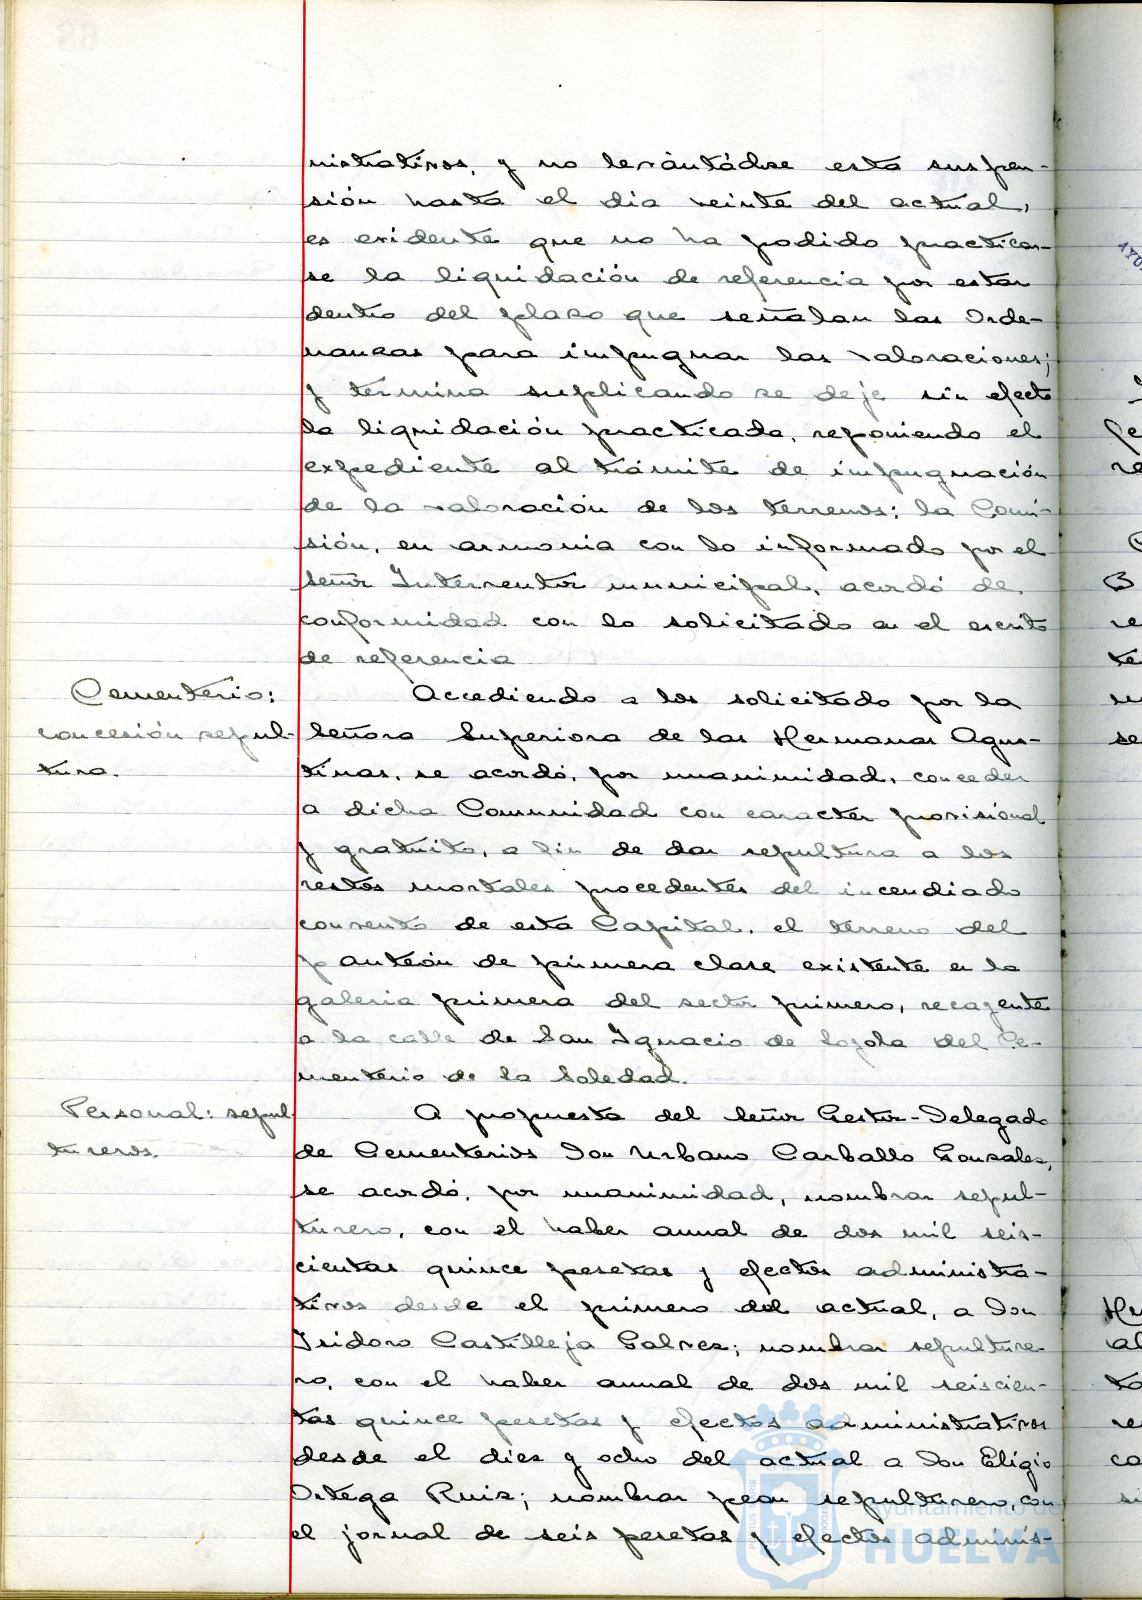 nistrativos, y no levántádose esta suspen-
sión hasta el dia veinte del actual,
es evidente que no ha podido practicar-
se la liquidación de referencia por estar
dentro del plazo que señalan las Orde-
nanzas para impugnar las valoraciones;
y termina suplicando se deje sin efecto
la liquidación practicada, reponiendo el
expediente al trámite de impugnación
de la valoración de los terrenos; la Comi-
sión, en armonia con lo informado por el
señor Interventor municipal, acordó de
conformidad con lo solicitado en el escrito
de referencia
Cementerio:
concesión sepul-
tura.
Accediendo a los solicitado por la
Señora Superiora de las Hermanas Agus-
tinas, se acordó, por unanimidad, conceder
a dicha Comunidad con caracter provisional
y gratuito, a fin de dar sepultura a los
restos mortales procedentes del incendiado
convento de esta Capital, el terreno del
panteón de primera clase existente en la
galeria primera del sector primero, recayente
a la calle de San Ignacio de Loyola del Ce-
menterio de la Soledad.
Personal: sepul
tureros.
A propuesta del Señor Gestor-Delegado
de Cementerios Don Urbano Carballo Gonzalez,
se acordó, por unanimidad, nombrar sepul-
turero, con el haber anual de dos mil seis-
cientas quince pesetas y efectos administra-
tivos desde el primero del actual, a Don
Isidoro Castilleja Galvez; nombrar sepulture-
ro, con el haber anual de dos mil seiscien-
tas quince pesetas y efectos administrativos
desde el diez y ocho del actual a Don Eligio
Ortega Ruiz; nombrar peon sepulturero, con
el jornal de seis pesetas y efectos adminis-
Ayuntamiento de
HUELVA